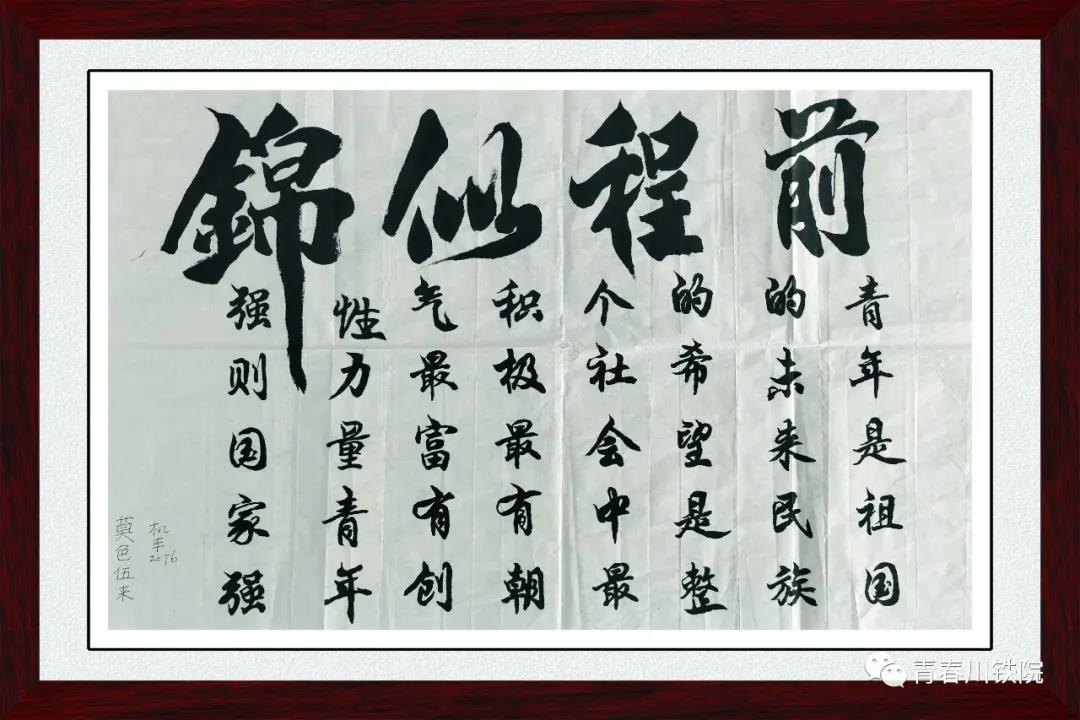 前程似錦
青年是祖国
的未来民族
的希望是整
个社会中最
积极最有朝
气最富有创
性力量青年
强则国家强
机车2076
莫色伍来
青春川铁院